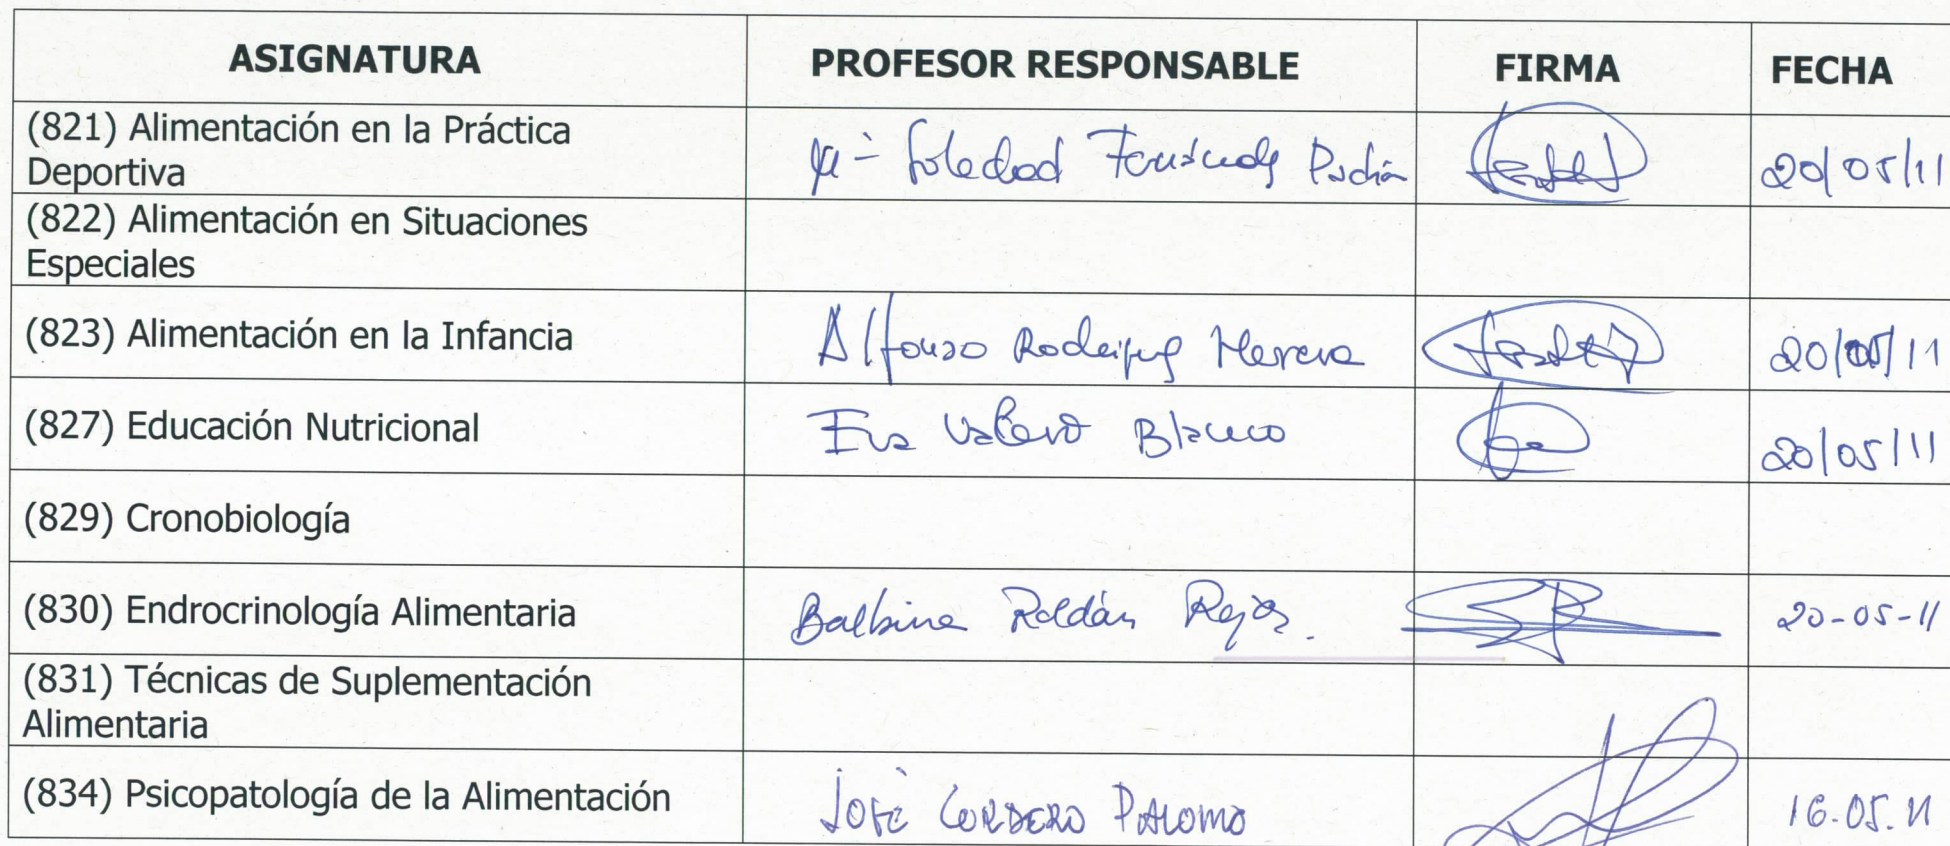 ASIGNATURA PROFESOR RESPONSABLE FIRMA FECHA
(821) Alimentación en la Práctica
Deportiva
Mª Soledad Fernández Pachón 20/05/11
(822) Alimentación en Situaciones
Especiales
(823) Alimentación en la Infancia Alfonso Rodríguez Herrera 20/05/11
(827) Educación Nutricional Eva Valero Blanco 20/05/11
(829) Cronobiología
(830) Endrocrinología Alimentaria Balbina Roldán Rejos. 20-05-11
(831) Técnicas de Suplementación
Alimentaria
(834) Psicopatología de la Alimentación José CORDERO PALOMO 16.05.11